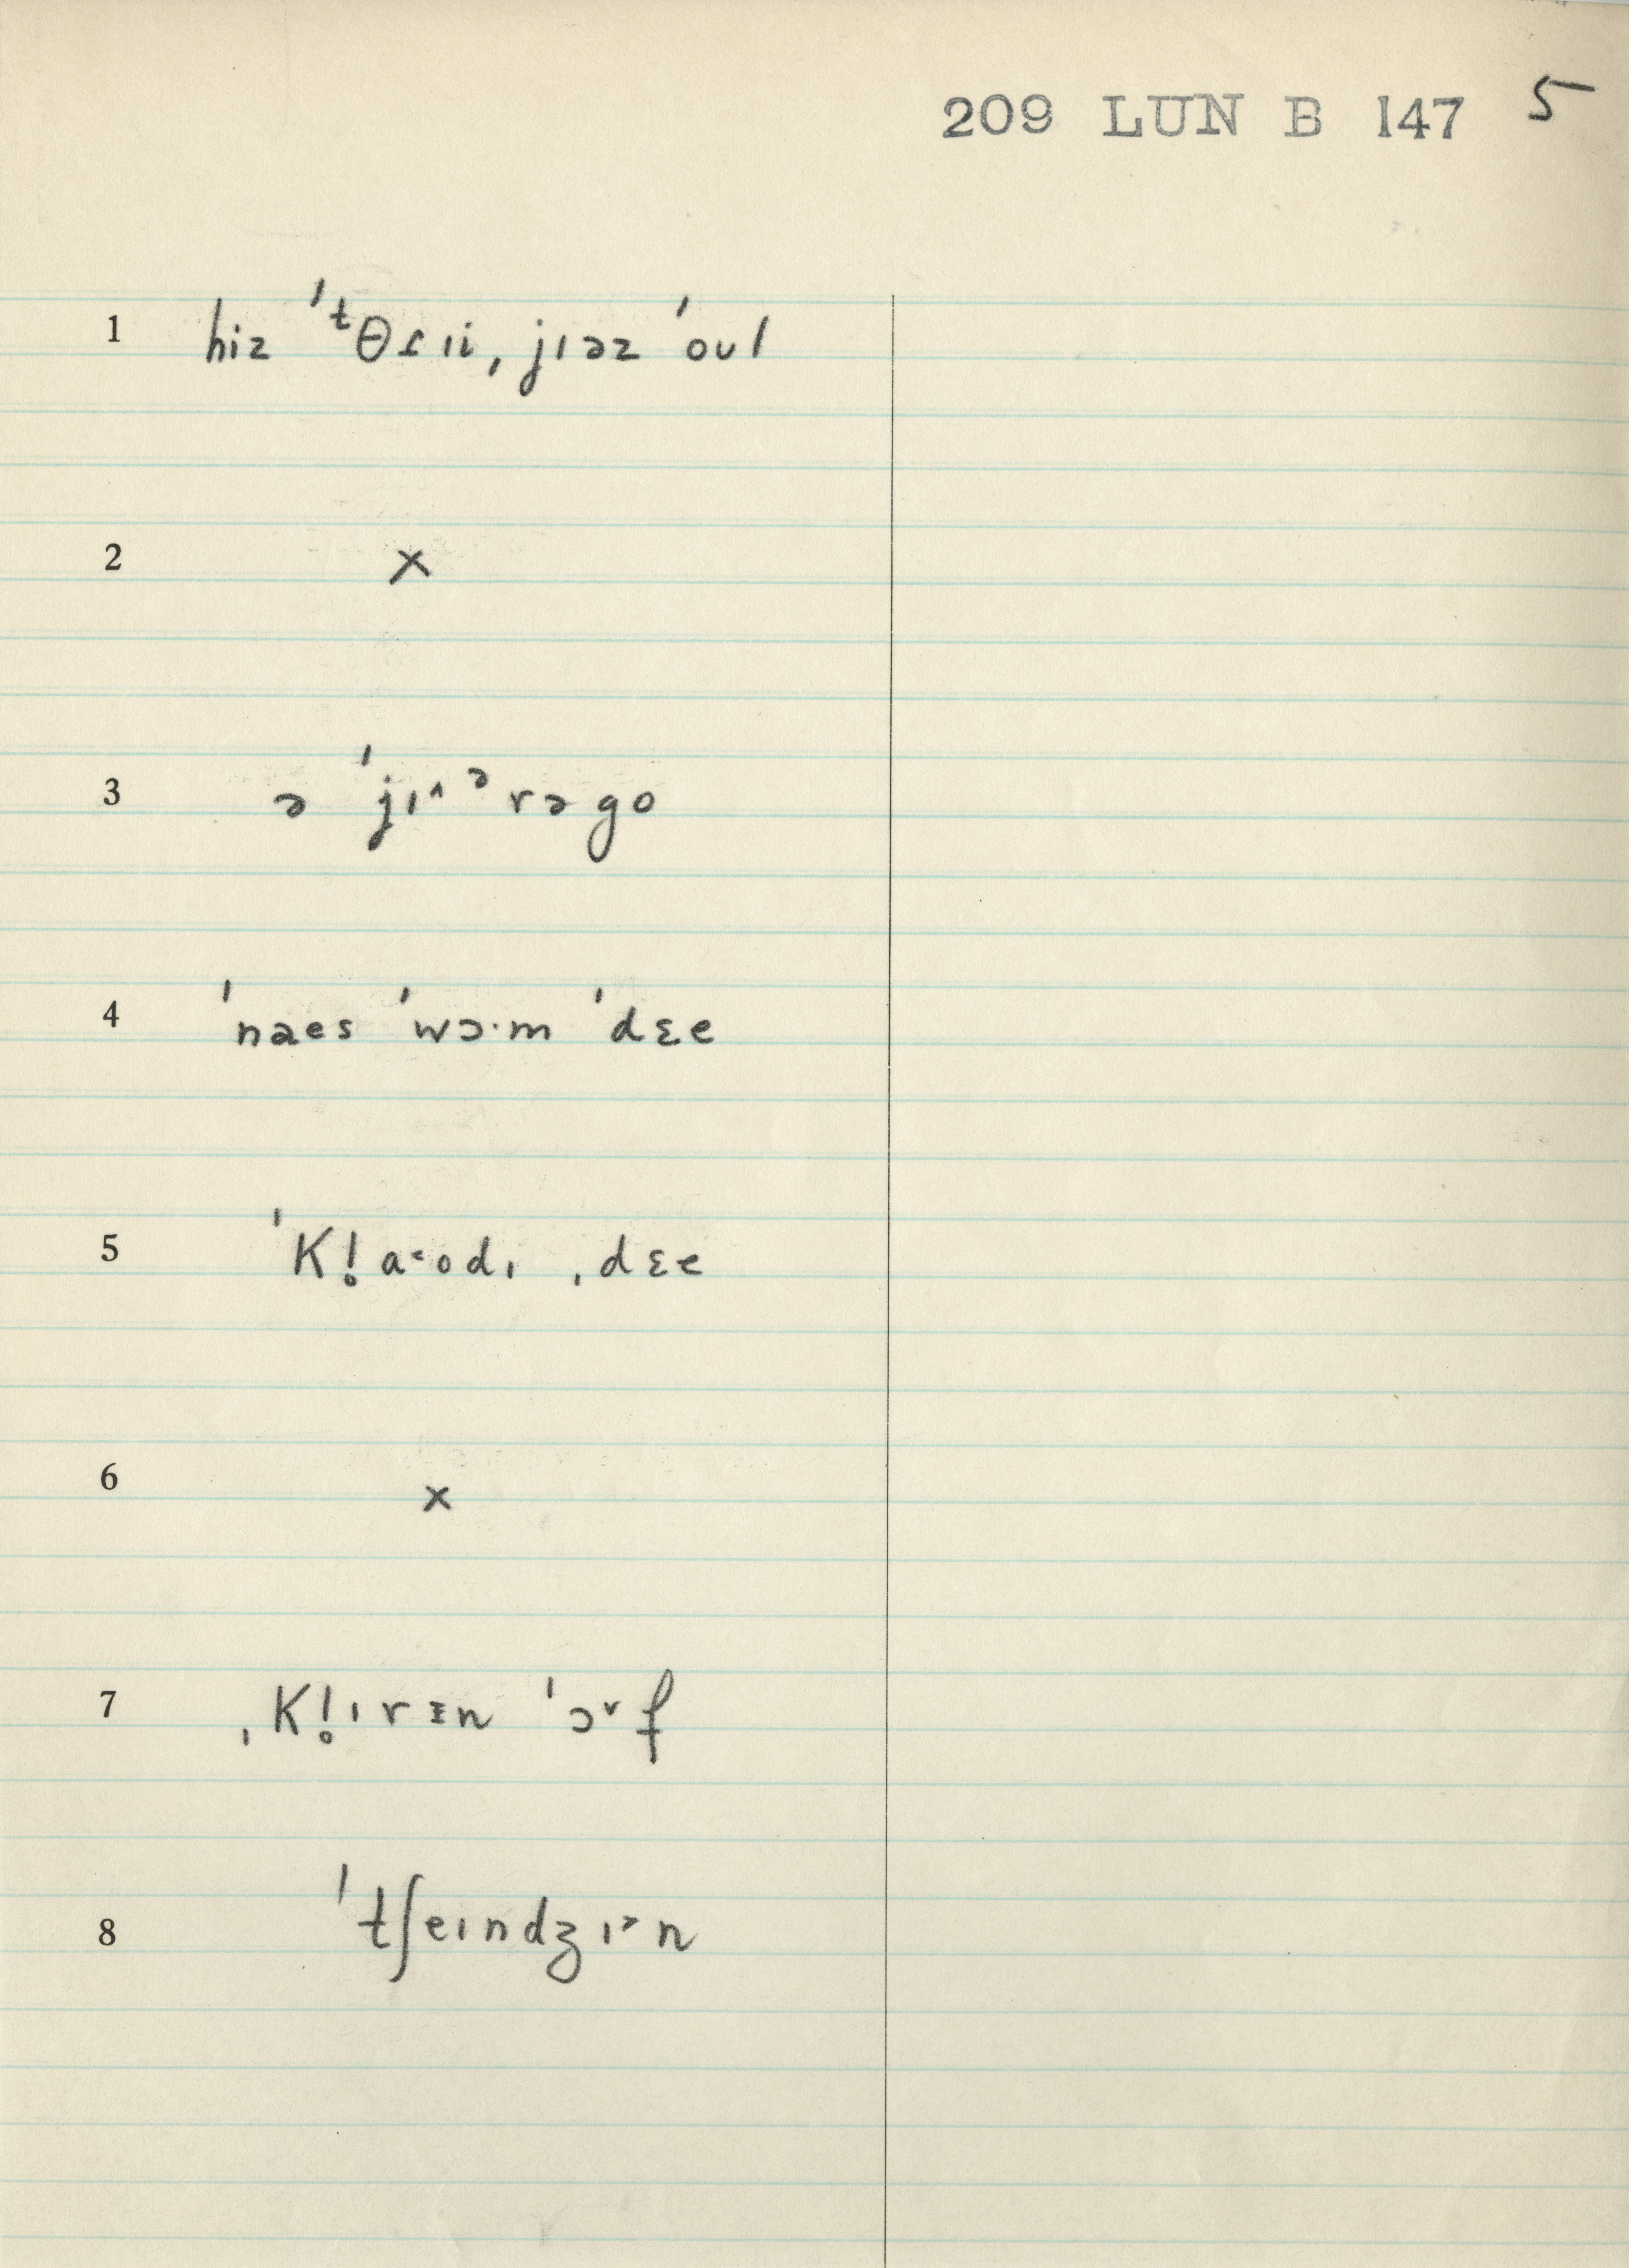 209 LUN B 147 5
1 hiz ˈᵗθɾıi, ˌjıəz ˈoʊl
2 ×
3 ə ˈjı^ᵊrəgo
4 ˈnaes ˈwɔ·m ˈdɛe
5 ˈK!aˑodı ˌdɛe
6 ×
7 ˌK!ırɪn ˈɔ˅f
8 ˈtʃeındʒı˃n